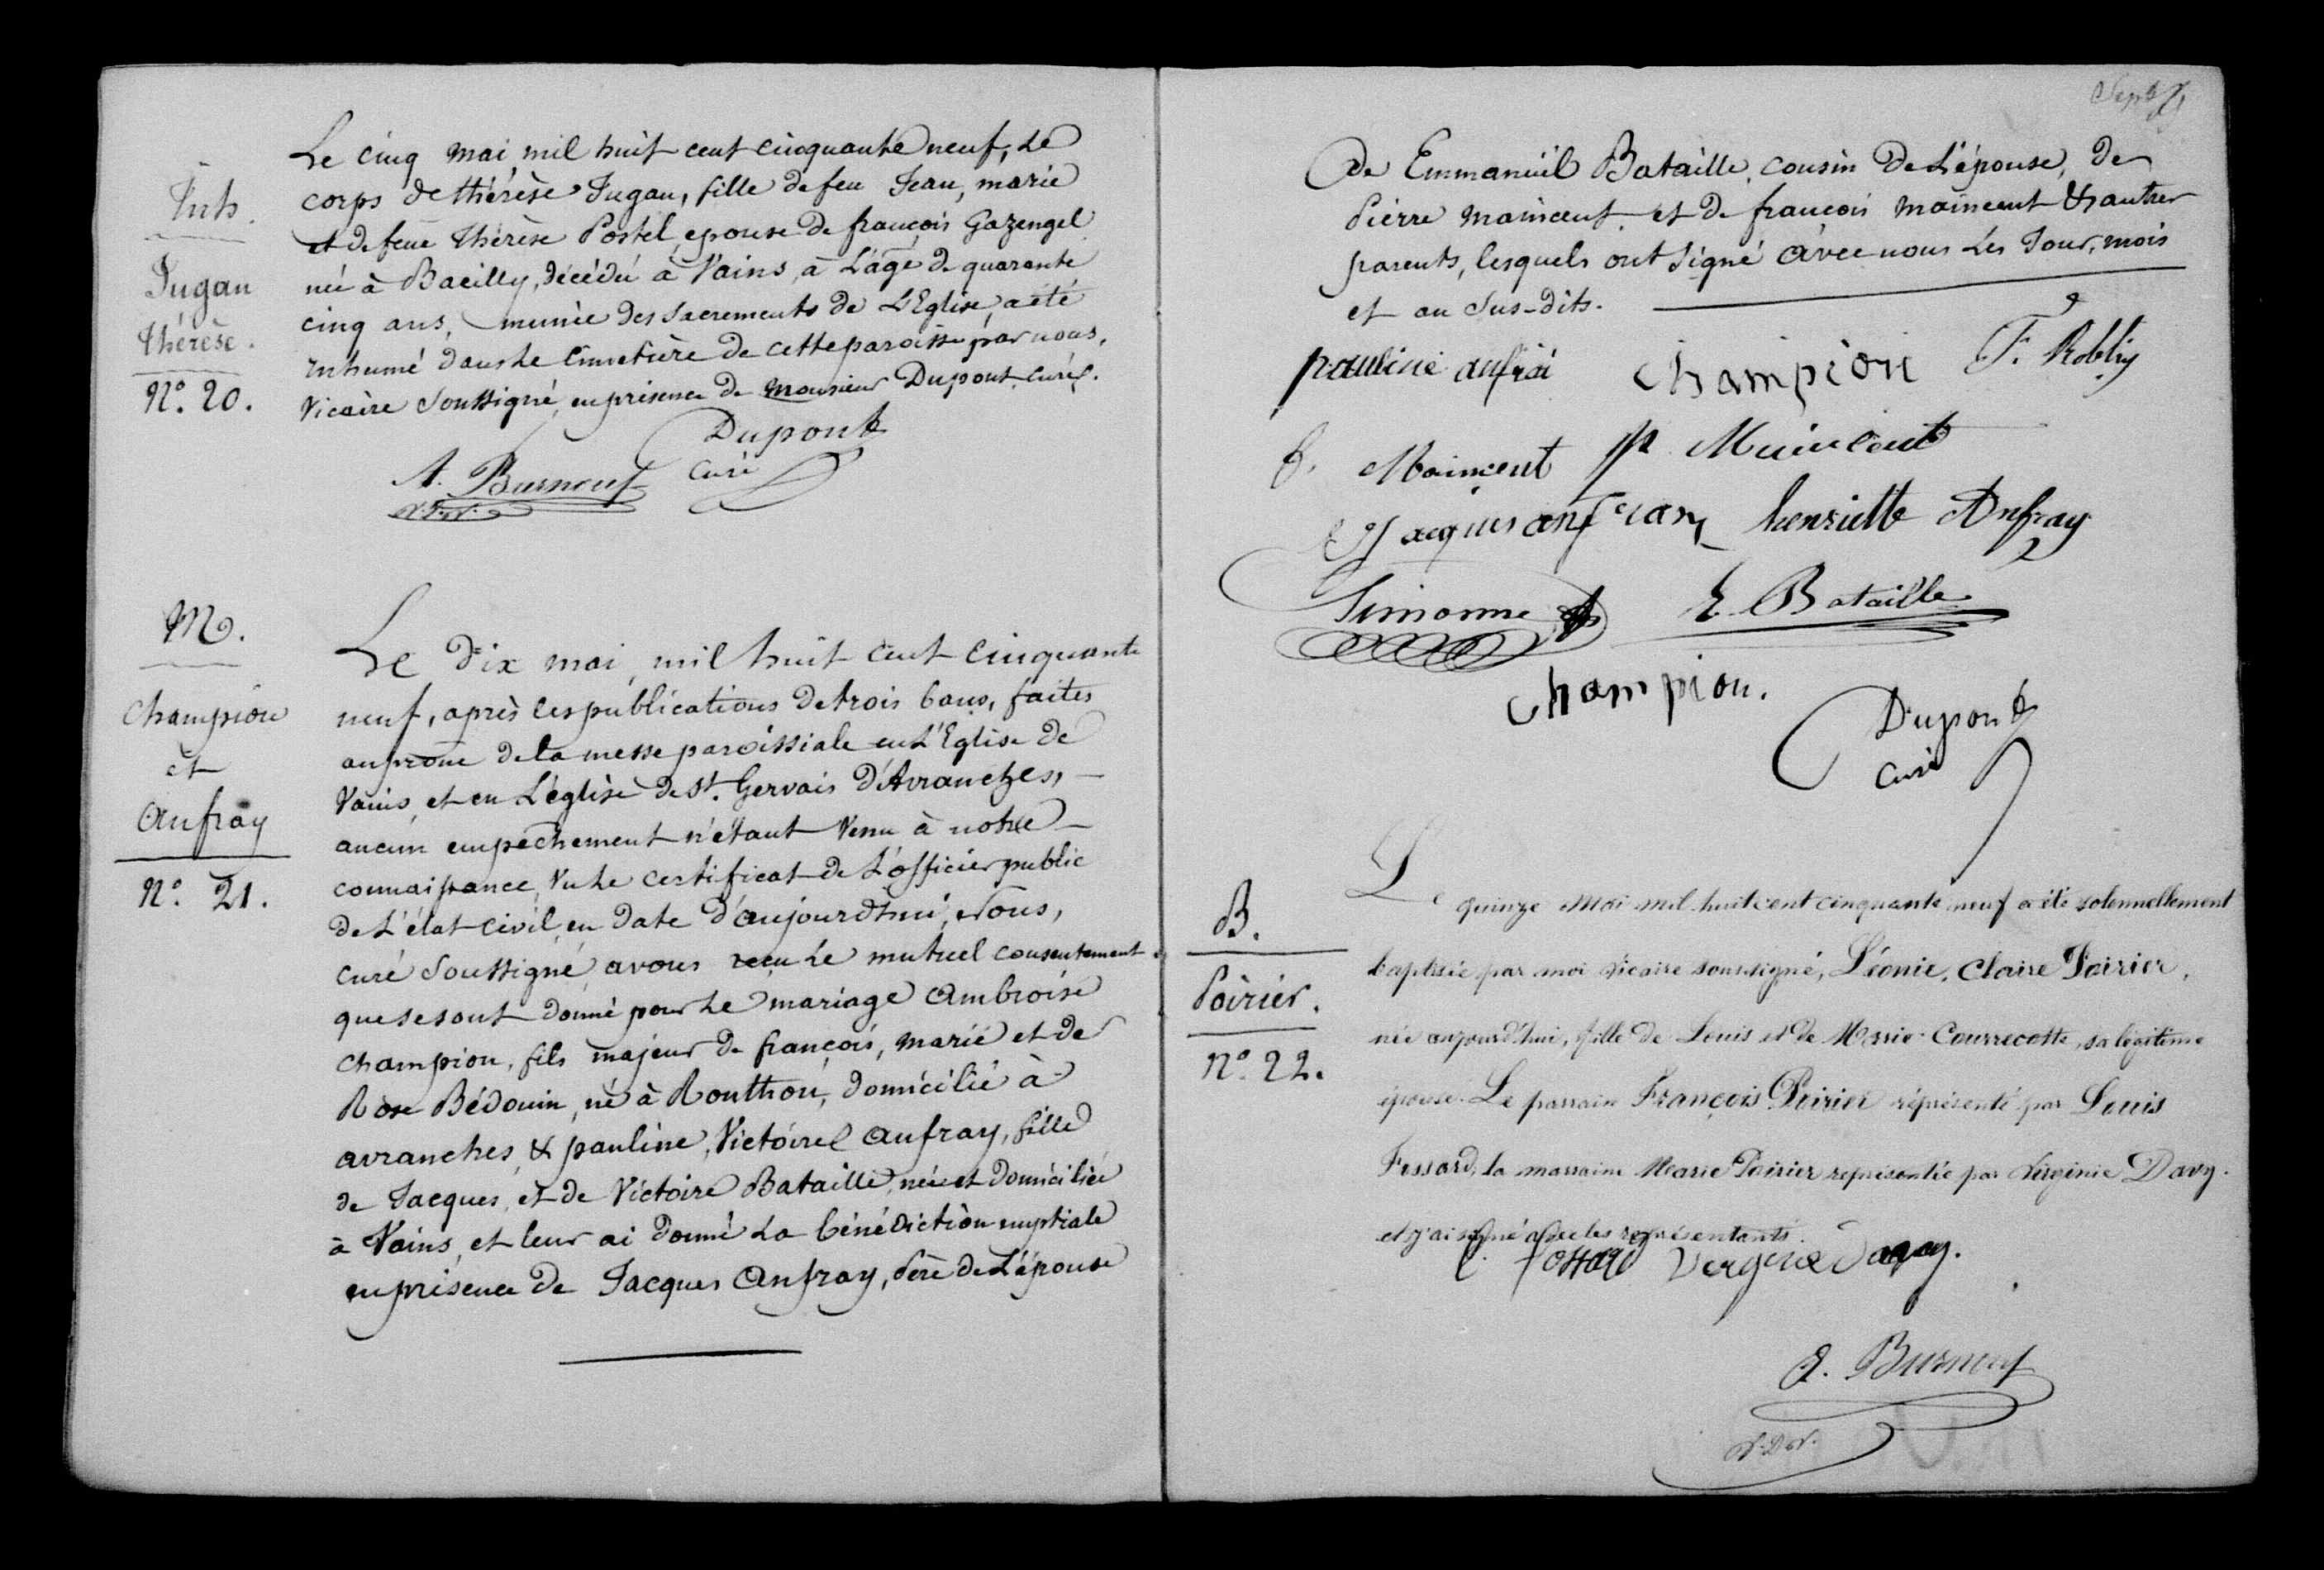 Inh.
Jugan
Thérèse.
N.o 20.
Le cinq mai mil huit cent cinquante neuf, Le
corps de thérèse Jugan, fille de feu Jean, marie
et de feue thérèse Postel, epouse de françois Gazengel
née à Bacilly, décédée à Vains, à L'âge de quarante
cinq ans, munie des Sacrements de L'Eglise, a été
inhumé dans Le Cimetière de cette paroisse par nous,
Vicaire Soussigné, en présence de Monsieur Dupont, curé.
A. Burnouf
Dupont
Curé
M.
Champion
et
Anfray
N.o 21.
Le dix mai, mil huit cent cinquante
neuf, après les publications de trois bans, faites
au prône de la messe paroissiale en L'Eglise de
Vains, et en L'église de St. Gervais d'Avranches,
aucun empechement n'étant Venu à notre
connaissance, Vu Le certificat de L'officier public
de L'état civil, en date d'aujourd'hui, Nous,
curé Soussigné, avons reçu Le mutuel consentement
que se sont donné pour Le mariage Ambroise
Champion, fils majeur de françois, marie et de
Rose Bédouin, né à Ronthon, domicilié à
avranches, & pauline, Victoire Anfray, fille
de Jacques, et de Victoire Bataille, née et domiciliée
à Vains, et leur ai donné La bénédiction nuptiale
en présence de Jacques Anfray, Père de L'épouse
Sept
de Emmanuël Bataille, cousin de L'épouse, de
Pierre Maincent et de françois Maincent & autres
parents, lesquels ont Signé avec nous Les Jour, mois
et an Sus-dits.
pauline anfrai Champion F. Roblin
f. Maincent P. Maincent
Jacques anfray henriette Anfray
Simonne E. Bataille
Champion.
Dupont
Curé
B.
Poirier.
N.o 22.
Le quinze Mai mil huit cent cinquante neuf a été solennellement
baptisée par moi vicaire soussigné, Léonie, Claire Poirier,
née aujourd'hui, fille de Louis et de Marie Courrecotte, sa légitime
épouse. Le parrain François Poirier représenté par Louis
Fossard, la marraine Marie Poirier représentée par Virginie Davy.
et j'ai signé avec les représentants.
L. fossard Vergine Davy.
A. Burnouf